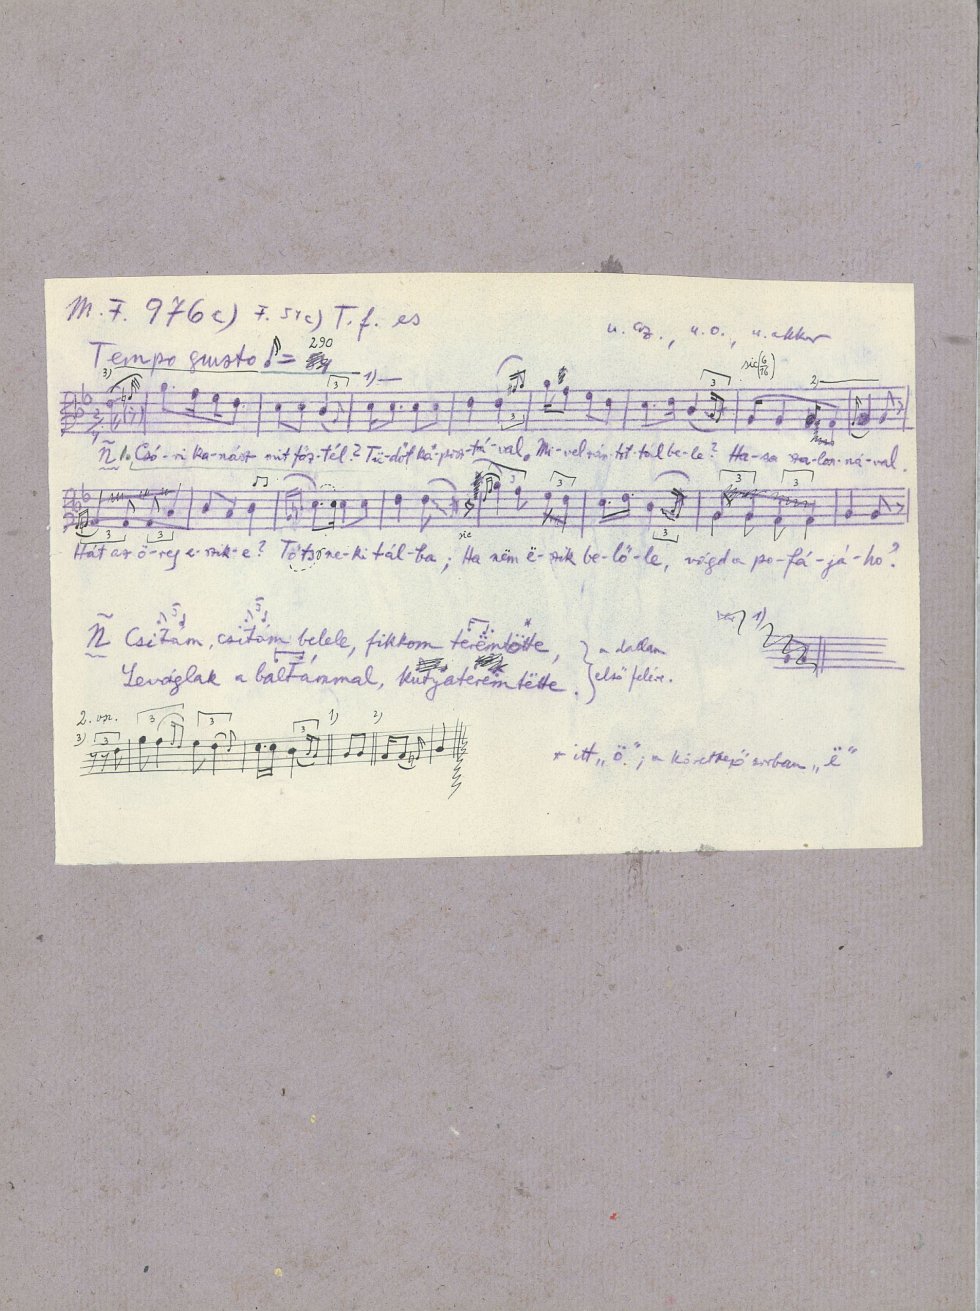 M. F. 976c) F. 51c) T. f. es
u. az., u. o., u. akkor
Tempo giusto = 290
3) 3 1) 3 sic (6/16) 2)
Ñ 1. Csó-ri ka-nász mit főz-tél? Tü-dőt ká-posz-tá-val, Mi-vel rán-tot-tál be-le? Ha-sa sza-lon-ná-val.
3 3 sic 3 3 3 3 3
Hát az ö-reg e-szik-e? Tőtsz ne-ki tál-ba; Ha nëm ë-szik be-lő-le, vágd a po-fá-já-ho?
Ñ Csitám, csitám belele, fikkom teremtötte,*
a dallam
Leváglak a baltámmal, kutyateremtëtte.
első felére.
1)
2. vsz.
3) 3 3 3 3 1) 2)
* itt „ö”; a következő sorban „ë”